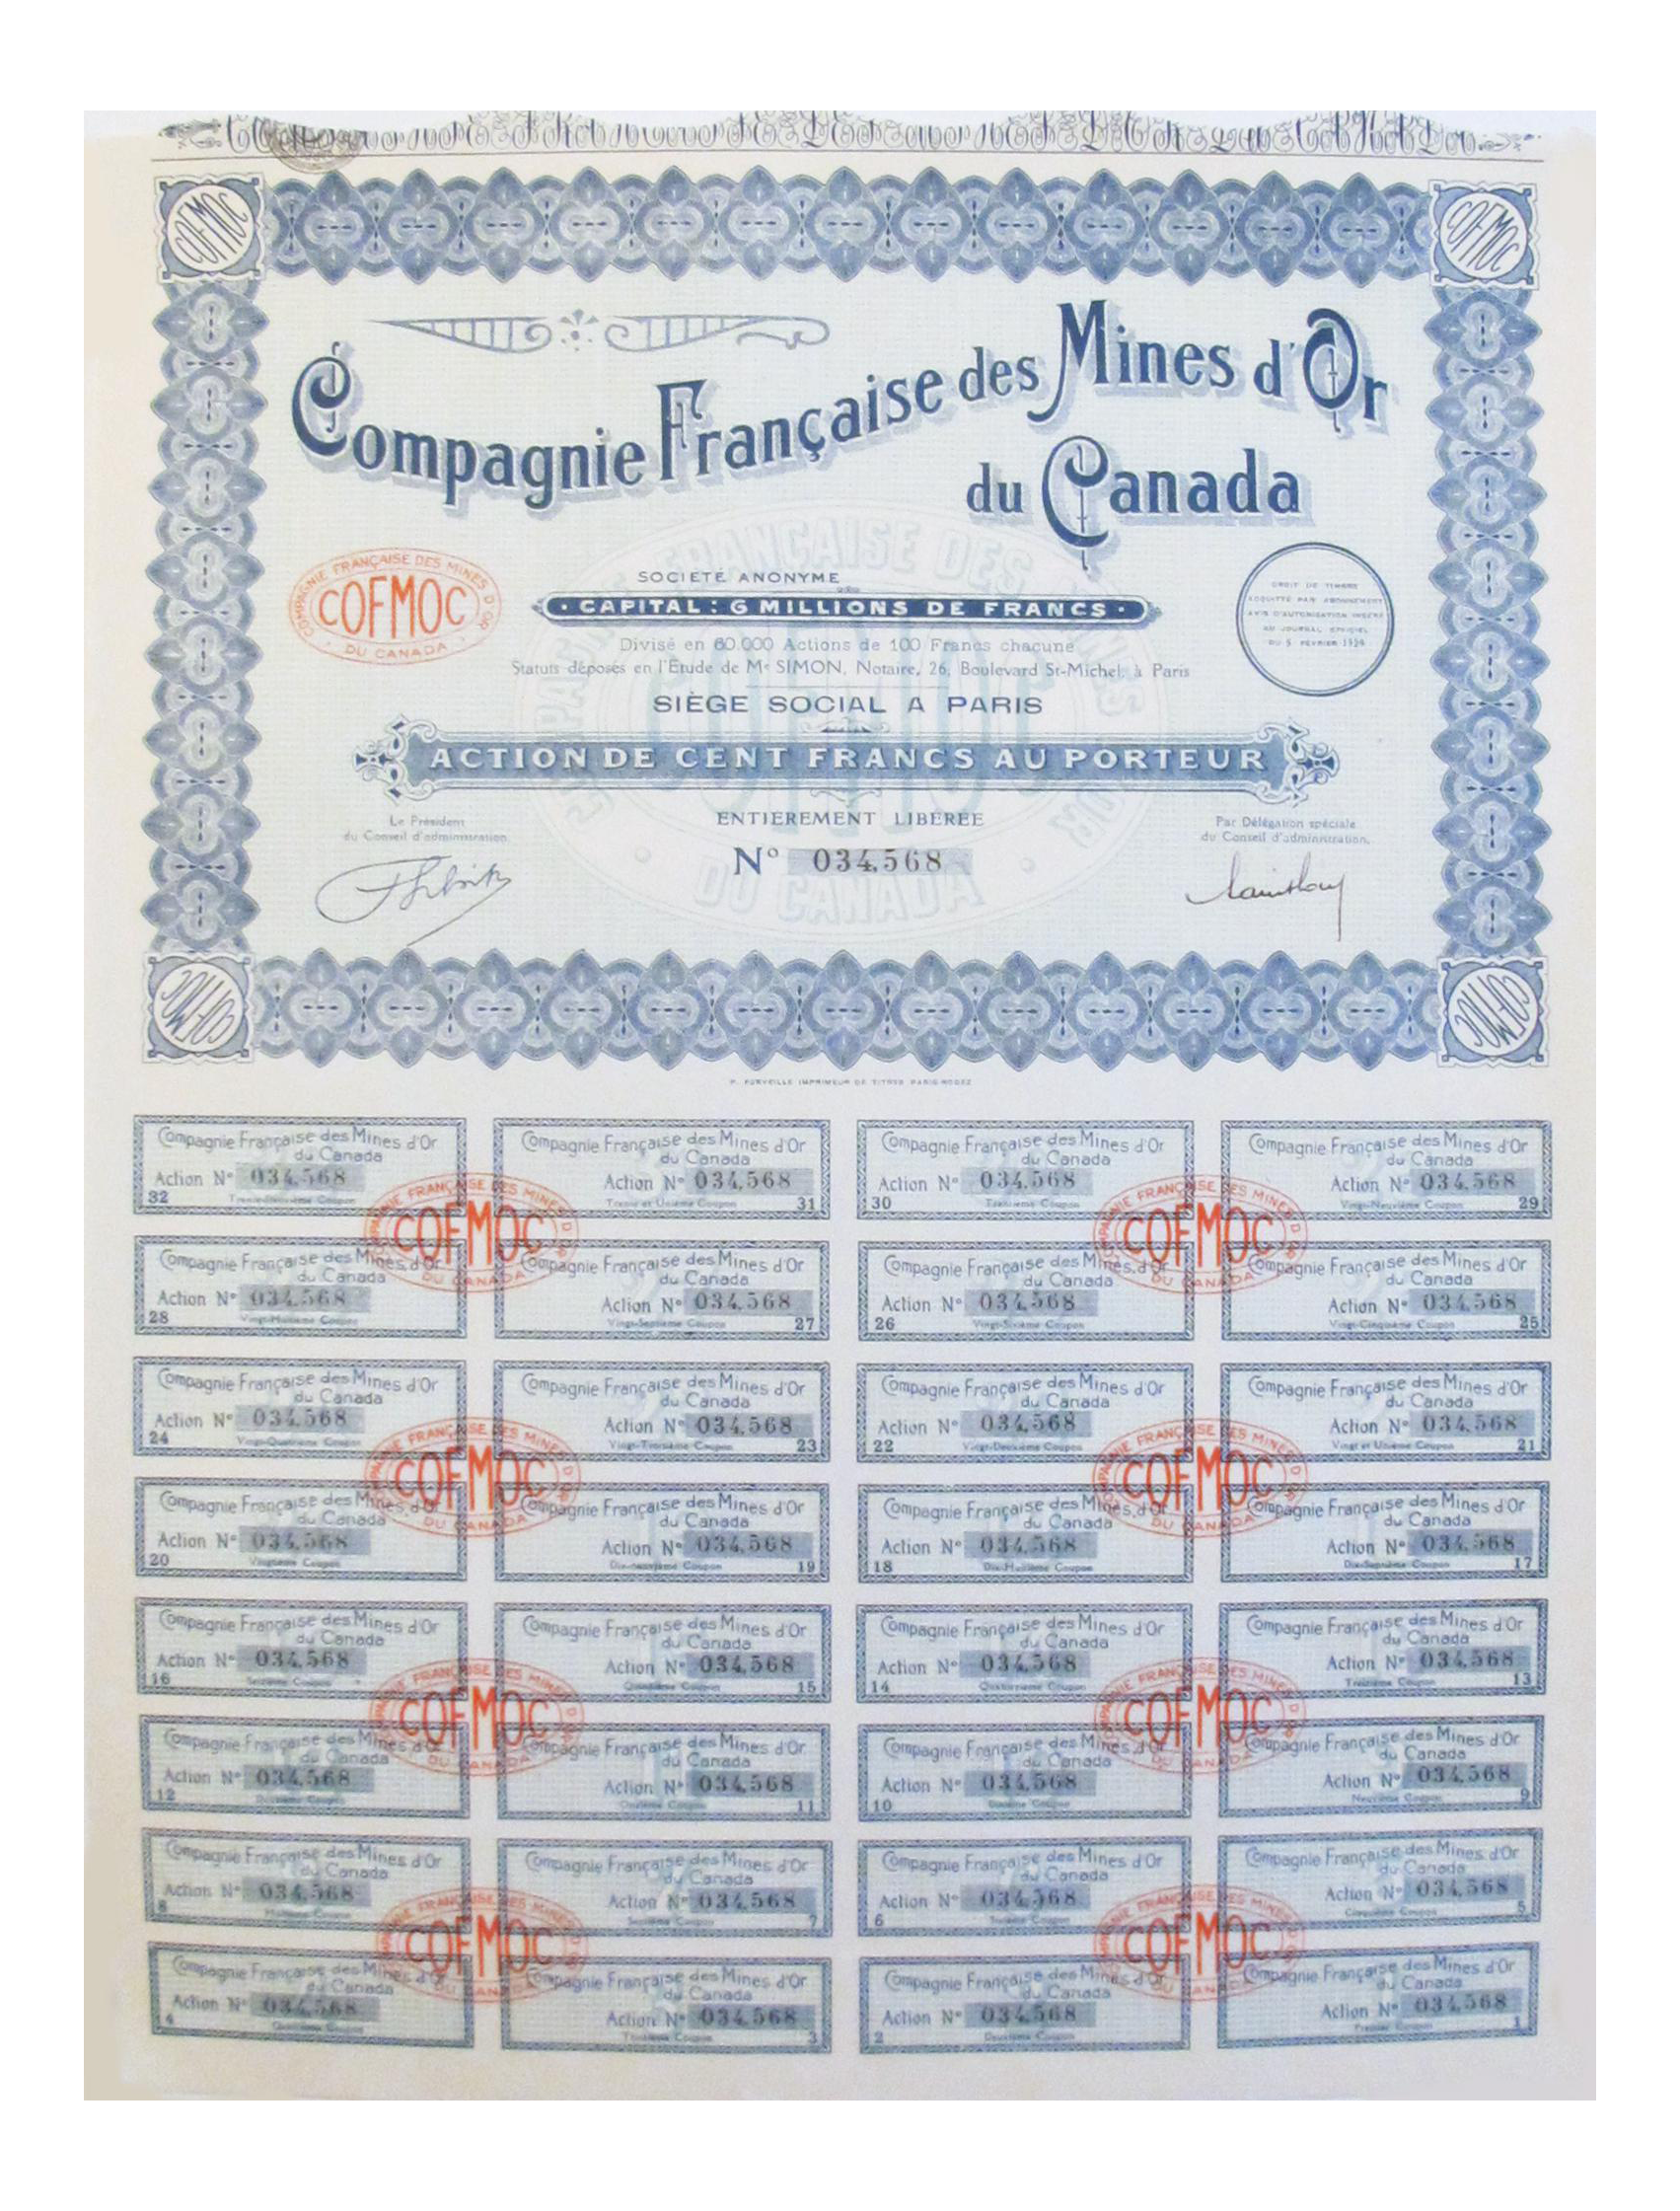 COFMOC
COFMOC
Compagnie Française des Mines d'Or
du Canada
COMPAGNIE FRANÇAISE DES MINES D'OR
COFMOC
DU CANADA
SOCIÉTÉ ANONYME
CAPITAL : 6 MILLIONS DE FRANCS
Divisé en 60.000 Actions de 100 Francs chacune
Statuts déposés en l'Étude de Me SIMON, Notaire, 26, Boulevard St-Michel, à Paris
DROIT DE TIMBRE
ACQUITTÉ PAR ABONNEMENT
AVIS D'AUTORISATION INSÉRÉ
AU JOURNAL OFFICIEL
DU 5 FÉVRIER 1934
SIÈGE SOCIAL A PARIS
ACTION DE CENT FRANCS AU PORTEUR
ENTIÈREMENT LIBÉRÉE
Le Président
du Conseil d'administration
Par Délégation spéciale
du Conseil d'administration,
N° 034,568
COFMOC
COFMOC
P. FORVEILLE IMPRIMEUR DE TITRES PARIS-RODEZ
Compagnie Française des Mines d'Or
du Canada
Action N° 034,568
32 Trente-Deuxième Coupon
Compagnie Française des Mines d'Or
du Canada
Action N° 034,568
Trente et Unième Coupon 31
Compagnie Française des Mines d'Or
du Canada
Action N° 034,568
30 Trentième Coupon
Compagnie Française des Mines d'Or
du Canada
Action N° 034,568
Vingt-Neuvième Coupon 29
COMPAGNIE FRANÇAISE DES MINES D'OR
COFMOC
DU CANADA
COMPAGNIE FRANÇAISE DES MINES D'OR
COFMOC
DU CANADA
Compagnie Française des Mines d'Or
du Canada
Action N° 034,568
28 Vingt-Huitième Coupon
Compagnie Française des Mines d'Or
du Canada
Action N° 034,568
Vingt-Septième Coupon 27
Compagnie Française des Mines d'Or
du Canada
Action N° 034,568
26 Vingt-Sixième Coupon
Compagnie Française des Mines d'Or
du Canada
Action N° 034,568
Vingt-Cinquième Coupon 25
Compagnie Française des Mines d'Or
du Canada
Action N° 034,568
24 Vingt-Quatrième Coupon
Compagnie Française des Mines d'Or
du Canada
Action N° 034,568
Vingt-Troisième Coupon 23
Compagnie Française des Mines d'Or
du Canada
Action N° 034,568
22 Vingt-Deuxième Coupon
Compagnie Française des Mines d'Or
du Canada
Action N° 034,568
Vingt et Unième Coupon 21
COMPAGNIE FRANÇAISE DES MINES D'OR
COFMOC
DU CANADA
COMPAGNIE FRANÇAISE DES MINES D'OR
COFMOC
DU CANADA
Compagnie Française des Mines d'Or
du Canada
Action N° 034,568
20 Vingtième Coupon
Compagnie Française des Mines d'Or
du Canada
Action N° 034,568
Dix-neuvième Coupon 19
Compagnie Française des Mines d'Or
du Canada
Action N° 034,568
18 Dix-Huitième Coupon
Compagnie Française des Mines d'Or
du Canada
Action N° 034,568
Dix-Septième Coupon 17
Compagnie Française des Mines d'Or
du Canada
Action N° 034,568
16 Seizième Coupon
Compagnie Française des Mines d'Or
du Canada
Action N° 034,568
Quinzième Coupon 15
Compagnie Française des Mines d'Or
du Canada
Action N° 034,568
14 Quatorzième Coupon
Compagnie Française des Mines d'Or
du Canada
Action N° 034,568
Treizième Coupon 13
COMPAGNIE FRANÇAISE DES MINES D'OR
COFMOC
DU CANADA
COMPAGNIE FRANÇAISE DES MINES D'OR
COFMOC
DU CANADA
Compagnie Française des Mines d'Or
du Canada
Action N° 034,568
12 Douzième Coupon
Compagnie Française des Mines d'Or
du Canada
Action N° 034,568
Onzième Coupon 11
Compagnie Française des Mines d'Or
du Canada
Action N° 034,568
10 Dixième Coupon
Compagnie Française des Mines d'Or
du Canada
Action N° 034,568
Neuvième Coupon 9
Compagnie Française des Mines d'Or
du Canada
Action N° 034,568
8 Huitième Coupon
Compagnie Française des Mines d'Or
du Canada
Action N° 034,568
Septième Coupon 7
Compagnie Française des Mines d'Or
du Canada
Action N° 034,568
6 Sixième Coupon
Compagnie Française des Mines d'Or
du Canada
Action N° 034,568
Cinquième Coupon 5
COMPAGNIE FRANÇAISE DES MINES D'OR
COFMOC
DU CANADA
COMPAGNIE FRANÇAISE DES MINES D'OR
COFMOC
DU CANADA
Compagnie Française des Mines d'Or
du Canada
Action N° 034,568
4 Quatrième Coupon
Compagnie Française des Mines d'Or
du Canada
Action N° 034,568
Troisième Coupon 3
Compagnie Française des Mines d'Or
du Canada
Action N° 034,568
2 Deuxième Coupon
Compagnie Française des Mines d'Or
du Canada
Action N° 034,568
Premier Coupon 1